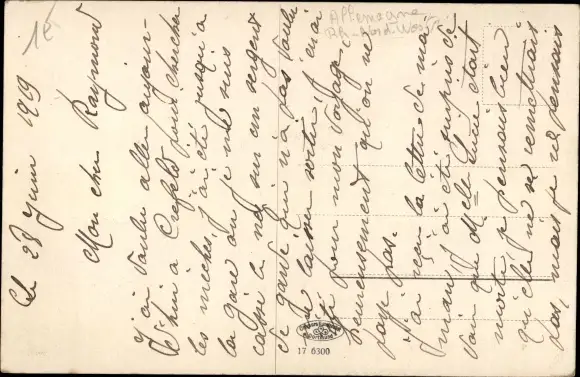 Le 28 Juin 1919
Mon cher Raymond
J'ai voulu aller aujour-
d'hui à Crefeld pour chercher
les mèches, j'ai été jusqu'à
la gare ou je me suis
cassé le nez sur un sergent
de garde qui n'a pas voulu
me laisser sortir, j'en ai
été pour mon voyage,
heureusement qu'on ne
paye pas.
J'ai reçu la lettre de ma-
man, j'ai été surpris de
voir que Melle Aline était
morte, je pensais bien
qu'elle ne se remettrait
pas, mais je ne pensais
Allemagne
1€
17 6300